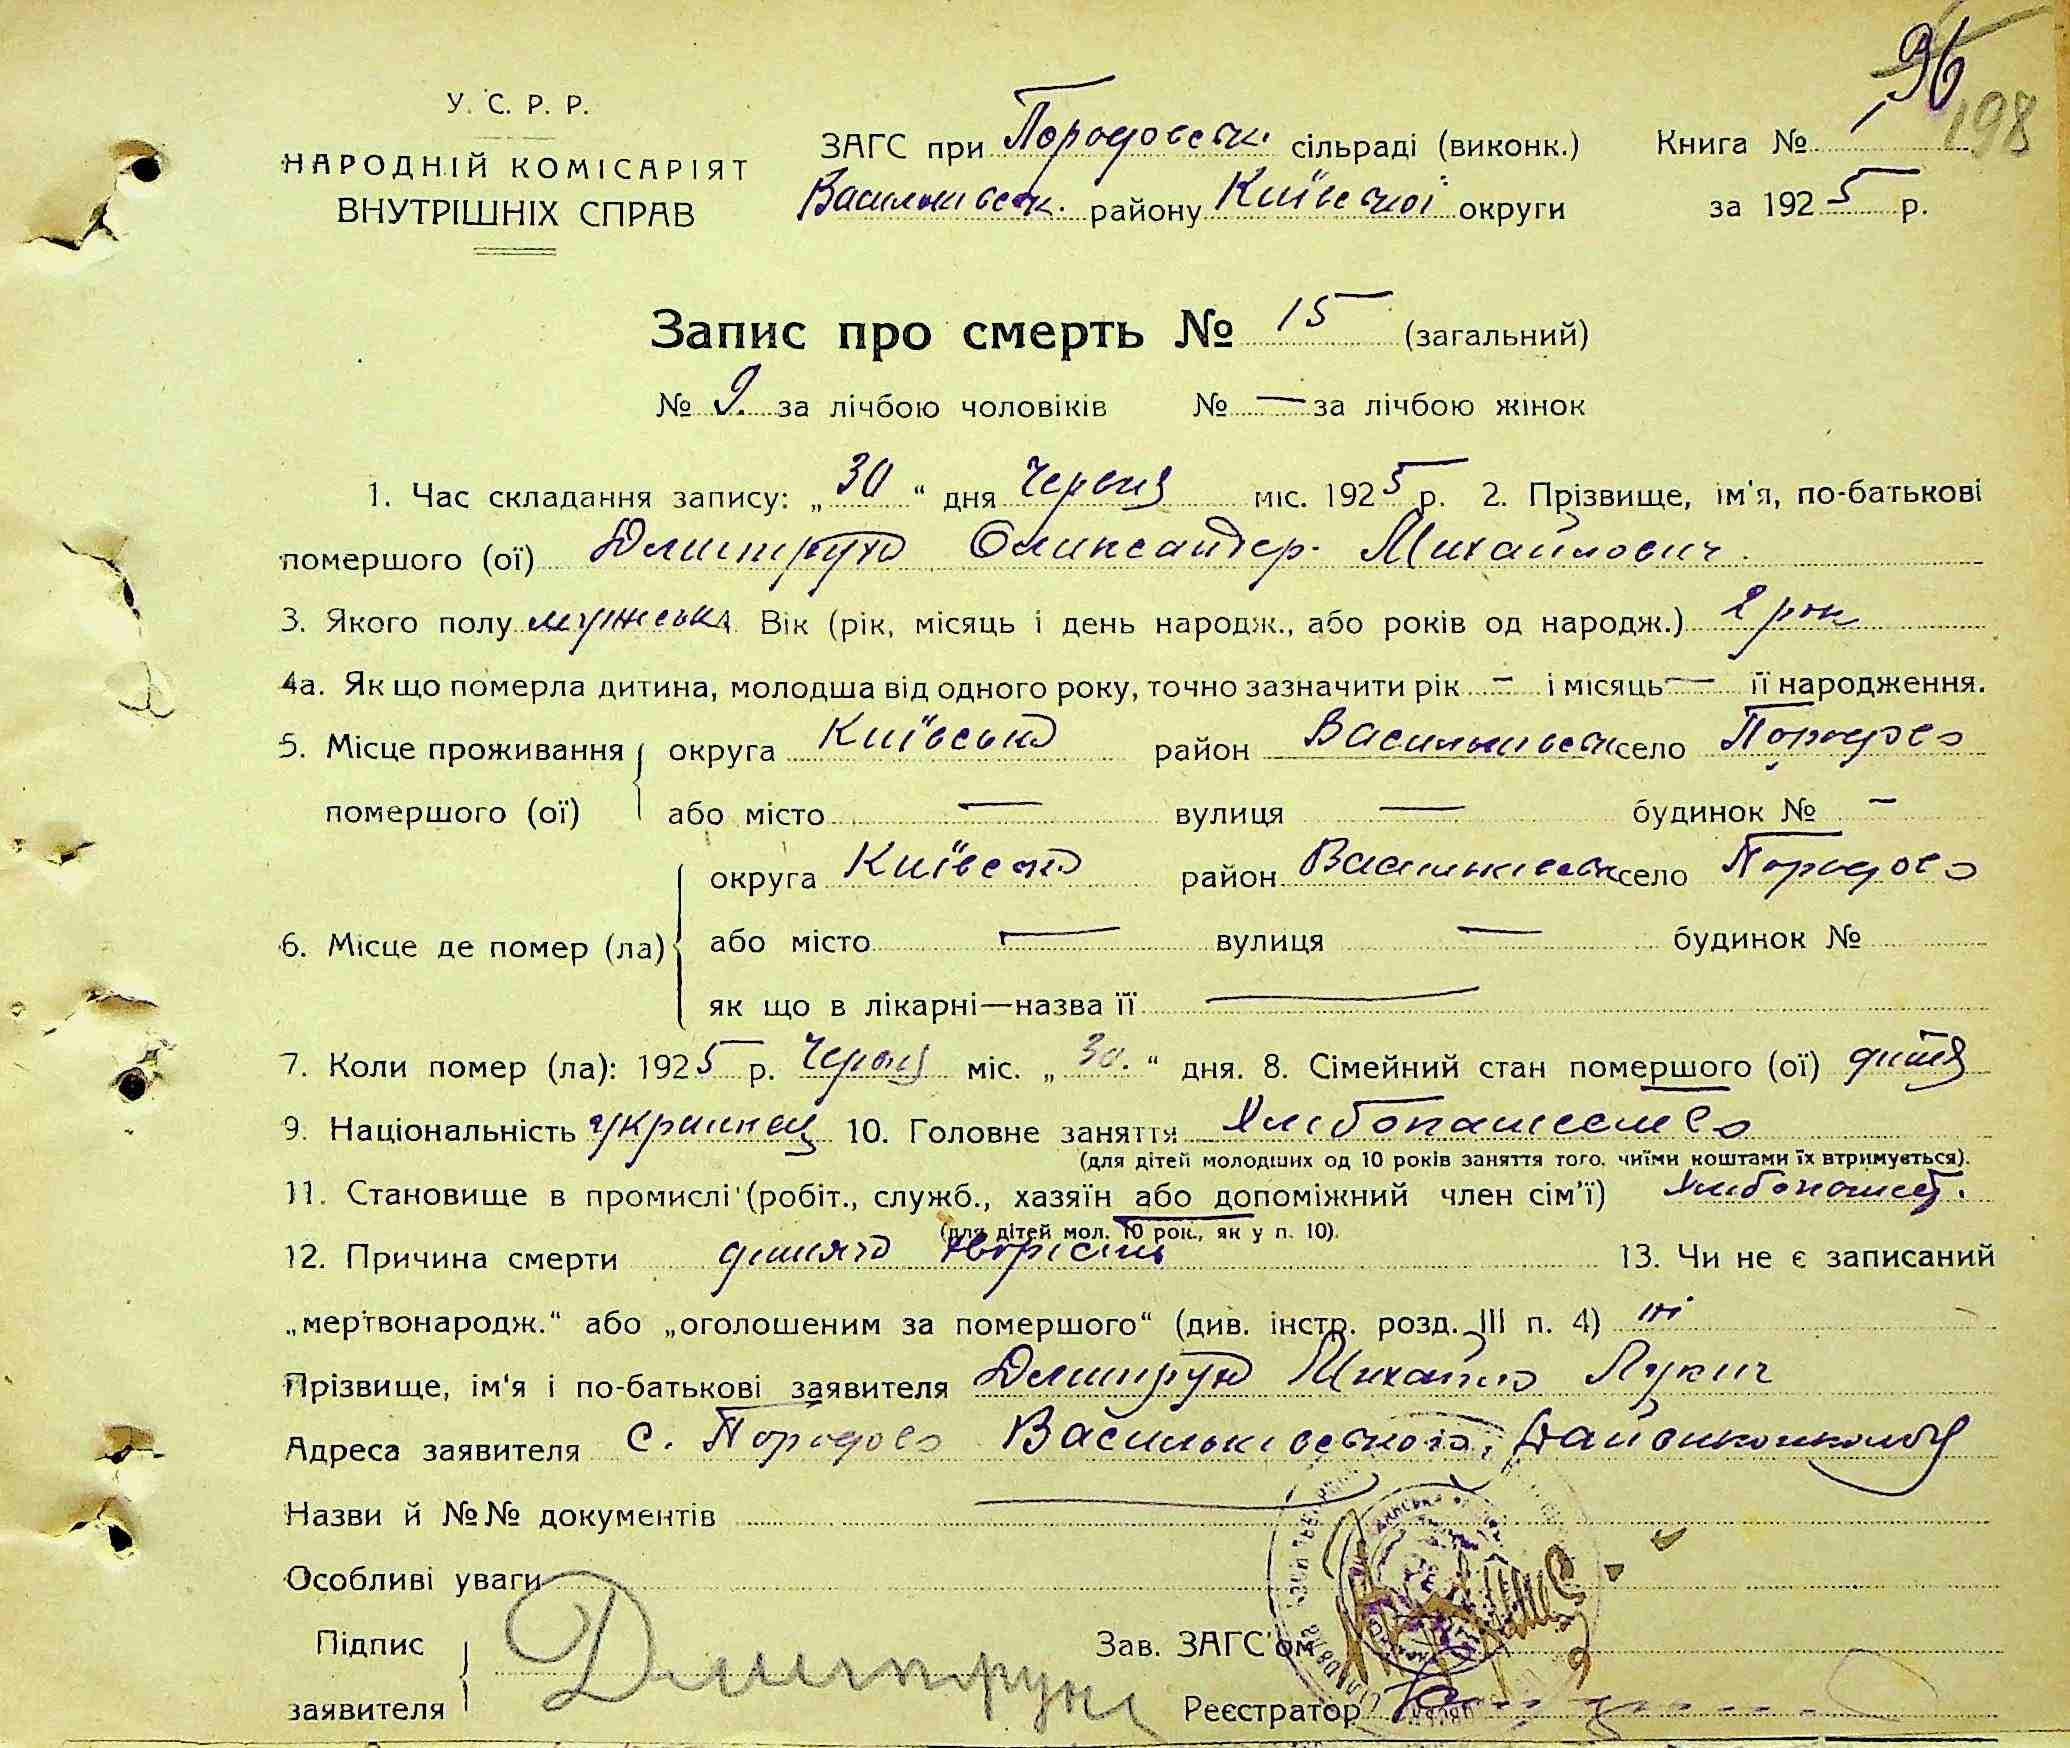 96
198
У. С. Р. Р.
НАРОДНІЙ КОМІСАРІЯТ
ВНУТРІШНІХ СПРАВ
ЗАГС при сільраді (виконк.) Книга №
Васильківськ. району Київської округи за 1925 р.
Запис про смерть № 15 (загальний)
№ 9. за лічбою чоловіків № — за лічбою жінок
1. Час складання запису: „30“ дня Червня міс. 1925 р. 2. Прізвище, ім'я, по-батькові
помершого (ої) Дмитрук Олександер Михайлович
3. Якого полу мужська Вік (рік, місяць і день народж., або років од народж.) 2 рок
4а. Як що померла дитина, молодша від одного року, точно зазначити рік — і місяць — її народження.
5. Місце проживання округа Київська район Васильківськ село
помершого (ої) або місто — вулиця — будинок № —
округа Київська район Васильківськ село
6. Місце де помер (ла) або місто — вулиця — будинок №
як що в лікарні—назва її —
7. Коли помер (ла): 1925 р. Червня міс. „30.“ дня. 8. Сімейний стан помершого (ої) дитя
9. Національність украинец 10. Головне заняття Хлібопашество
(для дітей молодших од 10 років заняття того, чиїми коштами їх втримується).
11. Становище в промислі (робіт., служб., хазяїн або допоміжний член сім'ї) Хлібопашец.
(для дітей мол. 10 рок., як у п. 10).
12. Причина смерти 13. Чи не є записаний
„мертвонародж.“ або „оголошеним за помершого“ (див. інстр. розд. III п. 4) ні
Прізвище, ім'я і по-батькові заявителя Дмитрук Михайло Лукич
Адреса заявителя с. Васильківського Райвиконкому
Назви й №№ документів —
Особливі уваги
Підпис Зав. ЗАГС'ом
заявителя Дмитрук Реєстратор